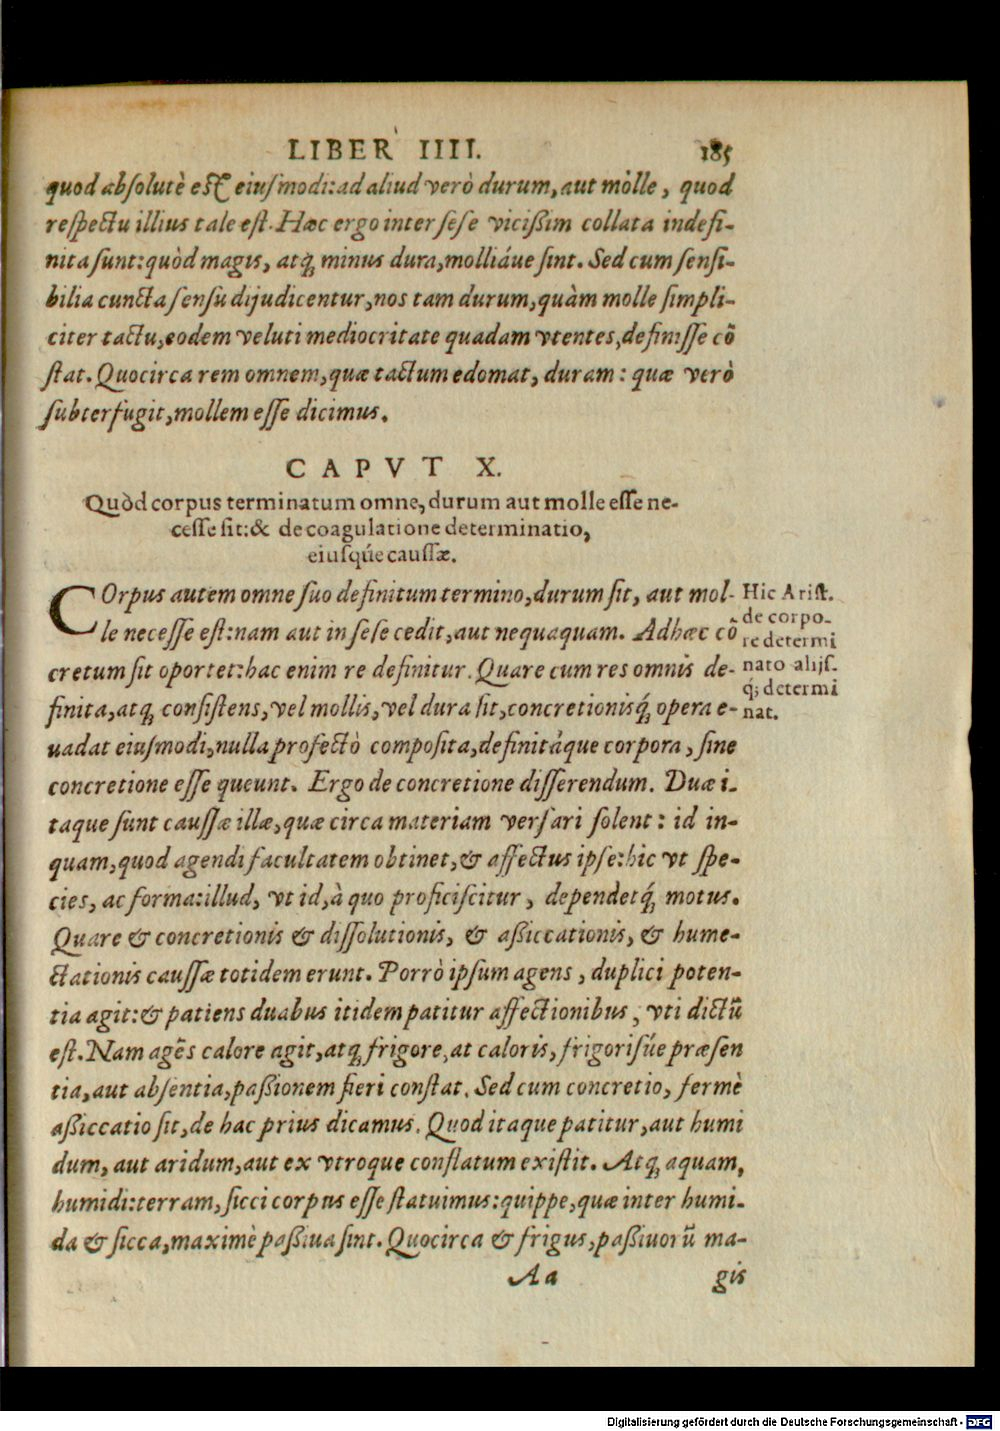 LIBER IIII. 185
quod absolutè est eiusmodi: ad aliud verò durum, aut mòlle, quod
respectu illius tale est. Hæc ergo inter sese vicißim collata indefi-
nita sunt: quòd magis, atq́ minus dura, molliáue sint. Sed cum sensi-
bilia cuncta sensu dijudicentur, nos tam durum, quàm molle simpli-
citer tactu, eodem veluti mediocritate quadam vtentes, definisse cõ
stat. Quocirca rem omnem, quæ tactum edomat, duram: quæ verò
subterfugit, mollem esse dicimus.
CAPVT X.
Quòd corpus terminatum omne, durum aut molle esse ne-
cesse sit: & de coagulatione determinatio,
eiusq́ue caussæ.
COrpus autem omne suo definitum termino, durum sit, aut mol-
le necesse est: nam aut in sese cedit, aut nequaquam. Adhæc cõ
cretum sit oportet: hac enim re definitur. Quare cum res omnis de-
finita, atq́ consistens, vel mollis, vel dura sit, concretionisq́ opera e-
uadat eiusmodi, nulla profectò composita, definitáque corpora, sine
concretione esse queunt. Ergo de concretione disserendum. Duæ i-
taque sunt caussæ illæ, quæ circa materiam versari solent: id in-
quam, quod agendi facultatem obtinet, & affectus ipse: hic vt spe-
cies, ac forma: illud, vt id, à quo proficiscitur, dependetq́ motus.
Quare & concretionis & dissolutionis, & aßiccationis, & hume-
ctationis caussæ totidem erunt. Porrò ipsum agens, duplici poten-
tia agit: & patiens duabus itidem patitur affectionibus, vti dictũ
est. Nam agẽs calore agit, atq́ frigore, at caloris, frigorisúe præsen
tia, aut absentia, paßionem fieri constat. Sed cum concretio, fermè
aßiccatio sit, de hac prius dicamus. Quod itaque patitur, aut humi
dum, aut aridum, aut ex vtroque conflatum existit. Atq́ aquam,
humidi: terram, sicci corpus esse statuimus: quippe, quæ inter humi-
da & sicca, maximè paßiua sint. Quocirca & frigus, paßiuorũ ma-
Aa gis
Hic Arist.
de corpo-
re determi
nato alijs-
q́; determi
nat.
Digitalisierung gefördert durch die Deutsche Forschungsgemeinschaft - DFG